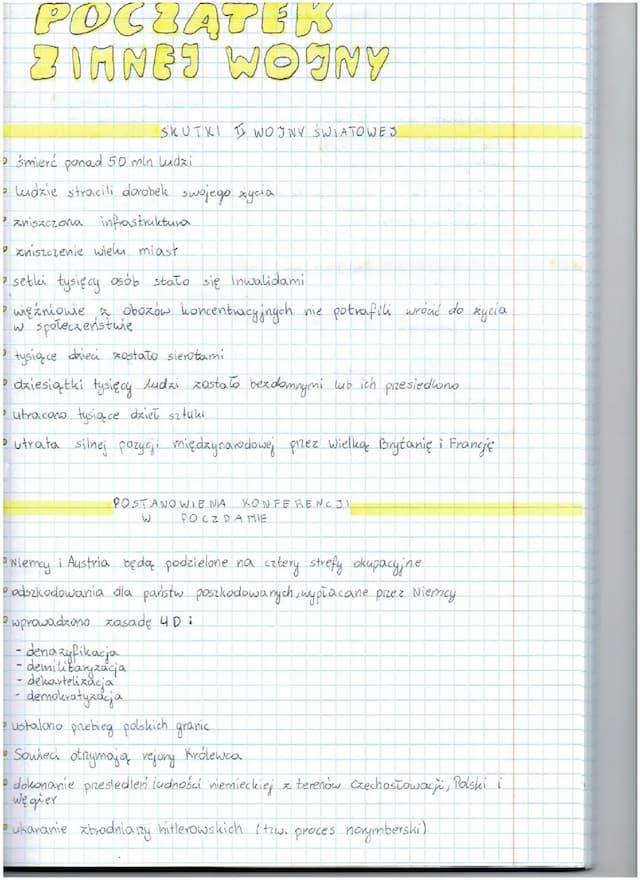 POCZĄTEK
ZIMNEJ WOJNY
SKUTKI II WOJNY ŚWIATOWEJ
śmierć ponad 50 mln ludzi
ludzie stracili dorobek swojego życia
zniszczona infrastruktura
zniszczenie wielu miast
setki tysięcy osób stało się inwalidami
więźniowie z obozów koncentracyjnych nie potrafili wrócić do życia
w społeczeństwie
tysiące dzieci zostało sierotami
dziesiątki tysięcy ludzi zostało bezdomnymi lub ich przesiedlono
utracono tysiące dzieł sztuki
utrata silnej pozycji międzynarodowej przez Wielką Brytanię i Francję
POSTANOWIENIA KONFERENCJI
W POCZDAMIE
Niemcy i Austria będą podzielone na cztery strefy okupacyjne
odszkodowania dla państw poszkodowanych, wypłacane przez Niemcy
wprowadzono zasadę 4D:
- denazyfikacja
- demilitaryzacja
- dekartelizacja
- demokratyzacja
ustalono przebieg polskich granic
Sowieci otrzymają rejony Królewca
dokonanie przesiedleń ludności niemieckiej z terenów Czechosłowacji, Polski i
Węgier
ukaranie zbrodniarzy hitlerowskich (tzw. proces norymberski)